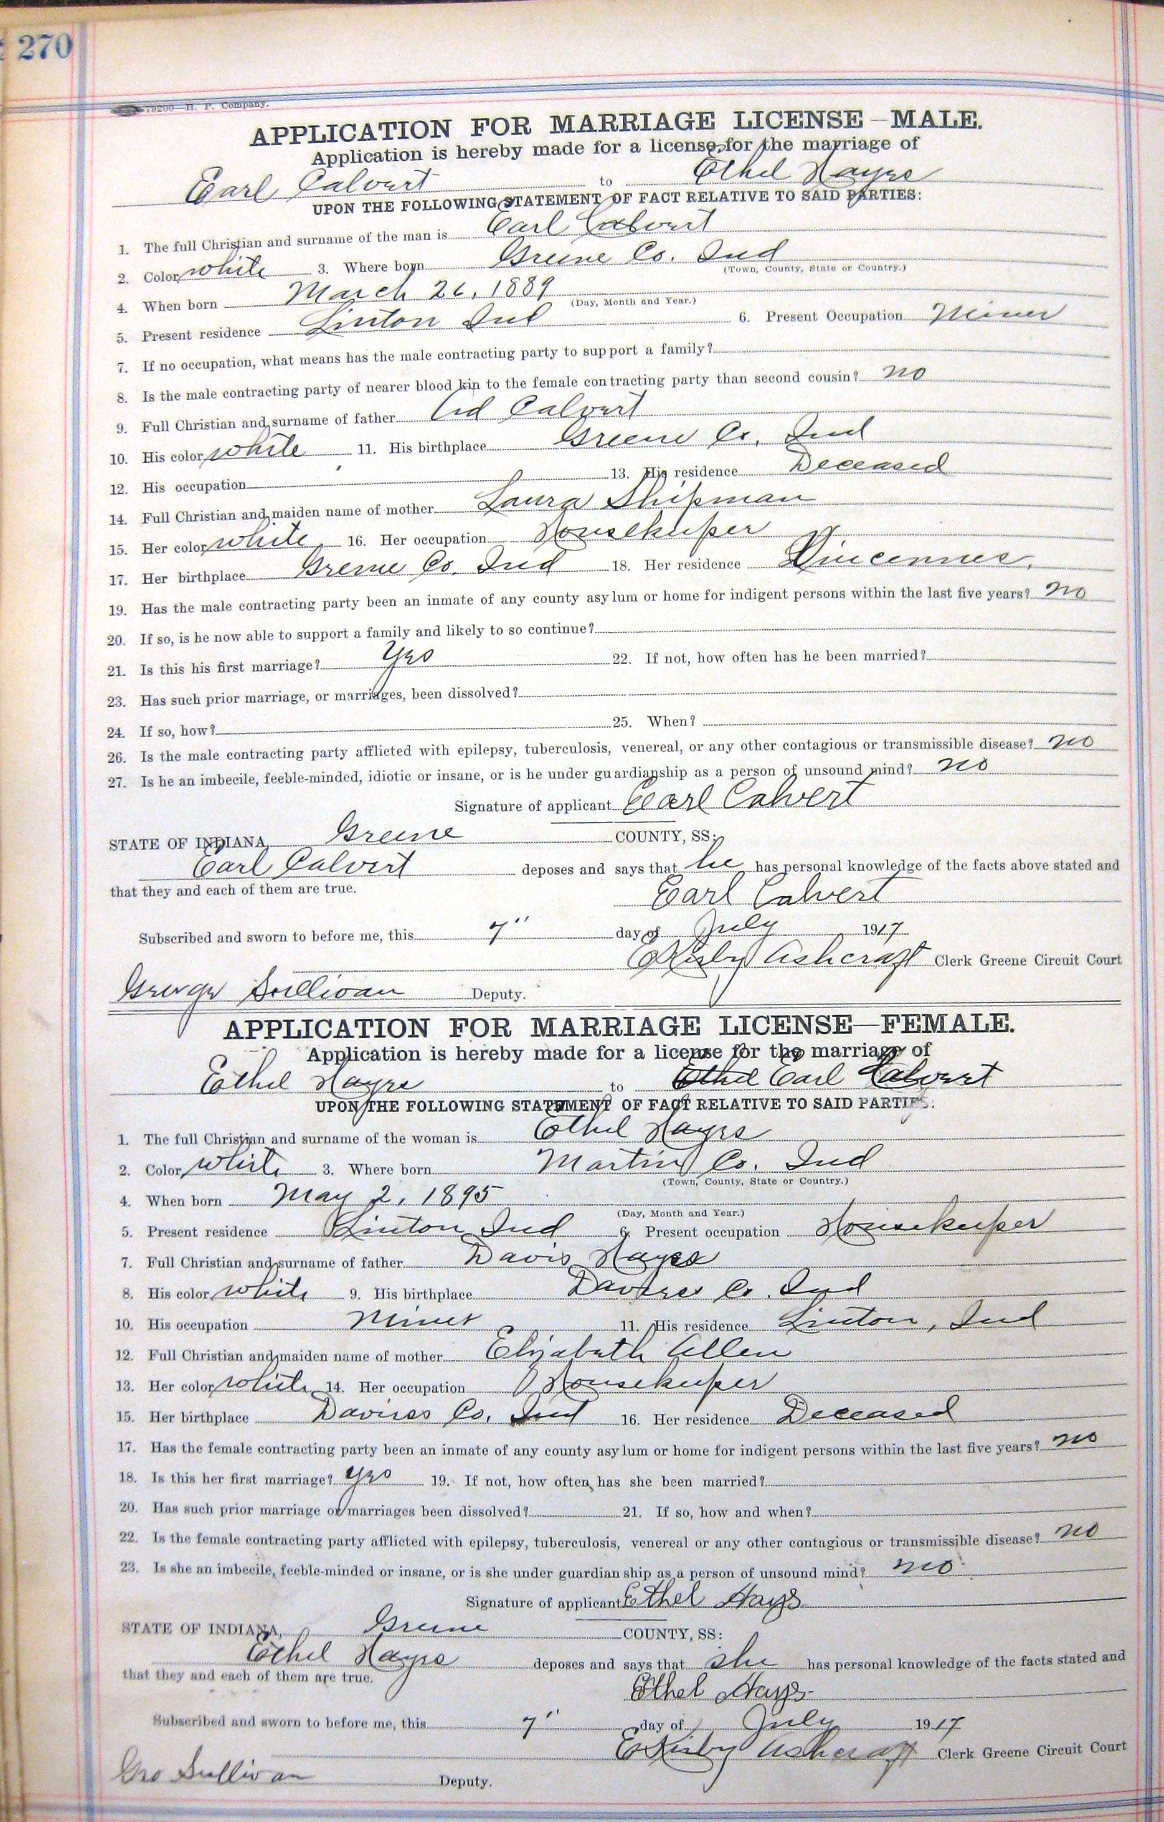 270
79200—H. P. Company.
APPLICATION FOR MARRIAGE LICENSE—MALE.
Application is hereby made for a license for the marriage of
Earl Calvert to Ethel Hayes
UPON THE FOLLOWING STATEMENT OF FACT RELATIVE TO SAID PARTIES:
1. The full Christian and surname of the man is Earl Calvert
2. Color white 3. Where born Greene Co. Ind
(Town, County, State or Country.)
4. When born March 26, 1889
(Day, Month and Year.)
5. Present residence Linton Ind 6. Present Occupation Miner
7. If no occupation, what means has the male contracting party to support a family?
8. Is the male contracting party of nearer blood kin to the female contracting party than second cousin? no
9. Full Christian and surname of father Calvert
10. His color white 11. His birthplace Greene Co. Ind
12. His occupation 13. His residence Deceased
14. Full Christian and maiden name of mother Laura Shipman
15. Her color white 16. Her occupation Housekeeper
17. Her birthplace Greene Co. Ind 18. Her residence Vincennes.
19. Has the male contracting party been an inmate of any county asylum or home for indigent persons within the last five years? no
20. If so, is he now able to support a family and likely to so continue?
21. Is this his first marriage? Yes 22. If not, how often has he been married?
23. Has such prior marriage, or marriages, been dissolved?
24. If so, how? 25. When?
26. Is the male contracting party afflicted with epilepsy, tuberculosis, venereal, or any other contagious or transmissible disease? no
27. Is he an imbecile, feeble-minded, idiotic or insane, or is he under guardianship as a person of unsound mind? no
Signature of applicant Earl Calvert
STATE OF INDIANA, Greene COUNTY, SS:
Earl Calvert deposes and says that he has personal knowledge of the facts above stated and
that they and each of them are true.
Earl Calvert
Subscribed and sworn to before me, this 7" day of July 1917
E Kirby Ashcraft Clerk Greene Circuit Court
George Sullivan Deputy.
APPLICATION FOR MARRIAGE LICENSE—FEMALE.
Application is hereby made for a license for the marriage of
Ethel Hayes to Ethel Earl Calvert
UPON THE FOLLOWING STATEMENT OF FACT RELATIVE TO SAID PARTIES:
1. The full Christian and surname of the woman is Ethel Hayes
2. Color white 3. Where born Martin Co. Ind
(Town, County, State or Country.)
4. When born May 2, 1895
(Day, Month and Year.)
5. Present residence Linton Ind 6. Present occupation Housekeeper
7. Full Christian and surname of father Davis Hayes
8. His color white 9. His birthplace Daviess Co. Ind
10. His occupation Miner 11. His residence Linton, Ind
12. Full Christian and maiden name of mother Elizabeth Allen
13. Her color white 14. Her occupation Housekeeper
15. Her birthplace Daviess Co. Ind 16. Her residence Deceased
17. Has the female contracting party been an inmate of any county asylum or home for indigent persons within the last five years? no
18. Is this her first marriage? yes 19. If not, how often has she been married?
20. Has such prior marriage or marriages been dissolved? 21. If so, how and when?
22. Is the female contracting party afflicted with epilepsy, tuberculosis, venereal or any other contagious or transmissible disease? no
23. Is she an imbecile, feeble-minded or insane, or is she under guardianship as a person of unsound mind? no
Signature of applicant Ethel Hays
STATE OF INDIANA, Greene COUNTY, SS:
Ethel Hayes deposes and says that she has personal knowledge of the facts stated and
that they and each of them are true.
Ethel Hays
Subscribed and sworn to before me, this 7" day of July 1917
E Kirby Ashcraft Clerk Greene Circuit Court
Geo Sullivan Deputy.